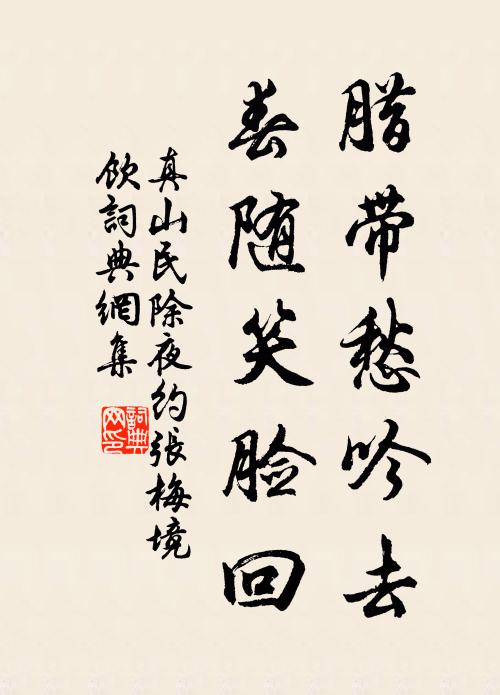 腊带愁吟去
春随笑脸回
真山民除夜约張梅境
饮詞典網集
詞典网印